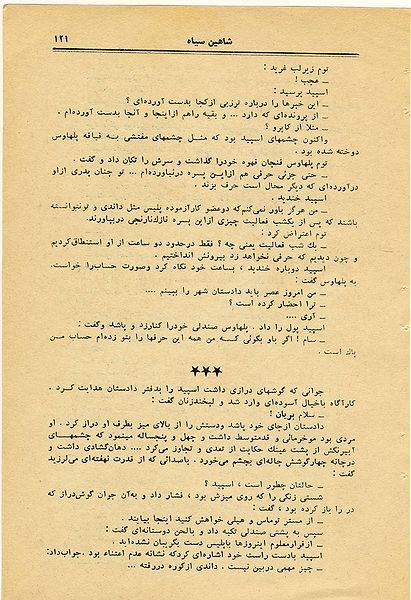 شاهین سیاه
۱۲۱
توم زیرلب غرید :
ـ عجب !
اسپید پرسید :
ـ این خبرها را درباره ترزبی ازکجا بدست آورده‌ای ؟
ـ از پرونده‌ای که دارد ... و بقیه راهم ازاینجا و آنجا بدست آورده‌ام .
ـ مثلا از کایرو ؟
واکنون چشمهای اسپید بود که مثـل چشمهای مفتشی بـه قیافه پلهاوس
دوخته شده بود .
توم پلهاوس فنجان قهوه خودرا گذاشت و سرش را تکان داد و گفت .
ـ حتی جزئی حرفی هم ازاین پسره درنیاورده‌ام ... تو چنان پدری ازاو
درآورده‌ای که دیگر محال است حرف بزند .
اسپید خندید .
ـ من هرگز باور نمی‌کنم‌که دوعضو کارآزموده پلیس مثل داندی و تونتوانسته
باشند که پس از یکشب فعالیت چیزی ازاین پسره نازك‌نارنجی دربیاورند.
توم اعتراض کرد :
ـ یك شب فعالیت یعنی چه ؟ فقط درحدود دو ساعت از او استنطاق‌کردیم
و چون دیدیم که حرفی نخواهد زد بیرونش انداختیم .
اسپید دوباره خندید ، بساعت خود نگاه کرد وصورت حساب‌را خواست.
به پلهاوس گفت :
ـ من امروز عصر باید دادستان شهر را ببینم ....
ـ ترا احضار کرده است ؟
ـ آری ....
اسپید پول را داد . پلهاوس صندلی خودرا کنارزد و پاشد وگفت :
ـ سام ! اگر باو بگوئی کـه من همه این حرفها را بتو زده‌ام حساب مـن
پاك است .
★★★
جوانی که گوشهای درازی داشت اسپید را بدفتر دادستان هدایت کرد .
کارآگاه باخیال آسوده‌ای وارد شد و لبخندزنان گفت :
ـ سلام بریان !
دادستان ازجای خود پاشد ودستش را از بالای میز بطرف او دراز کرد . او
مردی بود موخرمائی و قدمتوسط داشت و چهل و پنجساله مینمود که چشمهـای
آبیرنگش از پشت عینك حکایت از تعدی و تجاوز می‌کرد .... دهان‌گشادی داشت و
درچانه چهارگوشش چاله‌ای بچشم می‌خورد . باصدائی که از قدرت نهفته‌ای می‌لرزید
گفت :
ـ حالتان چطور است ، اسپید ؟
شستی زنگی را که روی میزش بود ، فشار داد و به‌آن جوان گوش‌دراز که
در را باز کرده بود ، گفت :
ـ از مستر توماس و هیلی خواهش کنید اینجا بیایند .
سپس به پشتی صندلی تکیه داد و بالحن دوستانه‌ای گفت :
ـ ازقرارمعلوم اینروزها باپلیس دست بگریبان شده‌اید .
اسپید بادست راست خود اشاره‌ای کردکه نشانه عدم اعتناء بود .جواب‌داد:
ـ چیز مهمی دربین نیست . داندی ازکوره دررفته ...